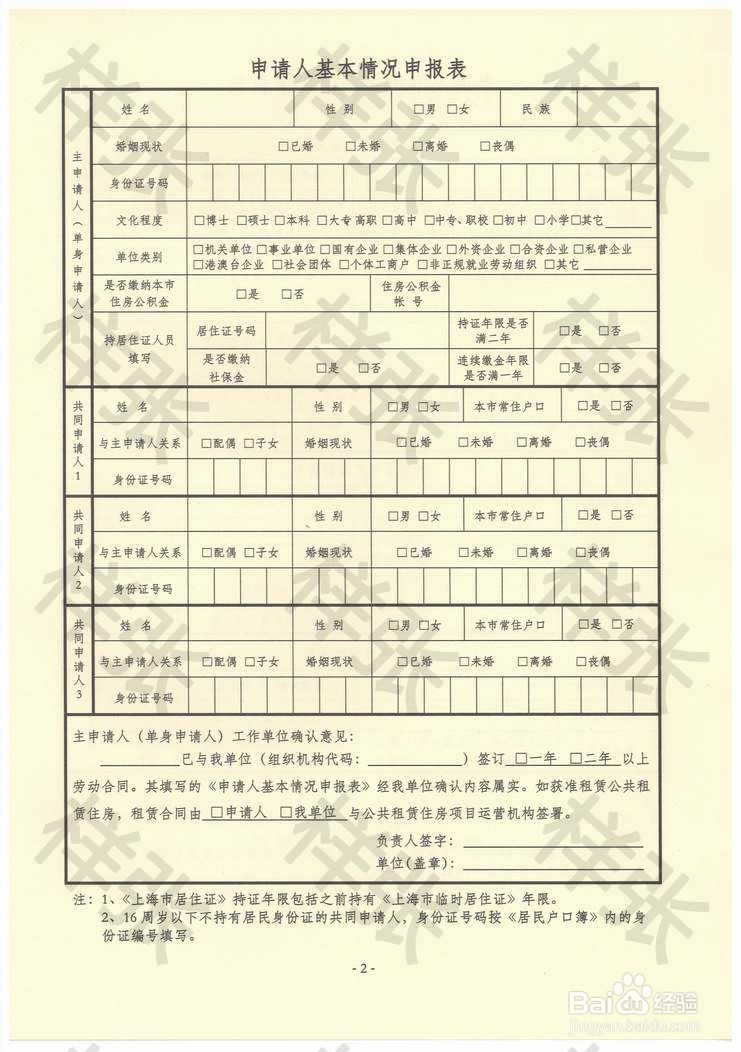 申请人基本情况申报表
主申请人（单身申请人）
姓 名 性 别 □男 □女 民 族
婚姻现状 □已婚 □未婚 □离婚 □丧偶
身份证号码
文化程度 □博士 □硕士 □本科 □大专高职 □高中 □中专、职校 □初中 □小学 □其它
单位类别 □机关单位 □事业单位 □国有企业 □集体企业 □外资企业 □合资企业 □私营企业
□港澳台企业 □社会团体 □个体工商户 □非正规就业劳动组织 □其它
是否缴纳本市
住房公积金
□是 □否
住房公积金
帐 号
持居住证人员
填写
居住证号码
持证年限是否
满二年
□是 □否
是否缴纳
社保金
□是 □否
连续缴金年限
是否满一年
□是 □否
共同申请人1
姓 名 性 别 □男 □女 本市常住户口 □是 □否
与主申请人关系 □配偶 □子女 婚姻现状 □已婚 □未婚 □离婚 □丧偶
身份证号码
共同申请人2
姓 名 性 别 □男 □女 本市常住户口 □是 □否
与主申请人关系 □配偶 □子女 婚姻现状 □已婚 □未婚 □离婚 □丧偶
身份证号码
共同申请人3
姓 名 性 别 □男 □女 本市常住户口 □是 □否
与主申请人关系 □配偶 □子女 婚姻现状 □已婚 □未婚 □离婚 □丧偶
身份证号码
主申请人（单身申请人）工作单位确认意见：
已与我单位（组织机构代码： ）签订 □一年 □二年 以上
劳动合同。其填写的《申请人基本情况申报表》经我单位确认内容属实。如获准租赁公共租
赁住房，租赁合同由 □申请人 □我单位 与公共租赁住房项目运营机构签署。
负责人签字：
单位(盖章)：
注：1、《上海市居住证》持证年限包括之前持有《上海市临时居住证》年限。
2、16周岁以下不持有居民身份证的共同申请人，身份证号码按《居民户口簿》内的身
份证编号填写。
- 2 -
样张
样张
样张
样张
样张
样张
样张
样张
样张
样张
样张
样张
Baidu经验
jingyan.baidu.com